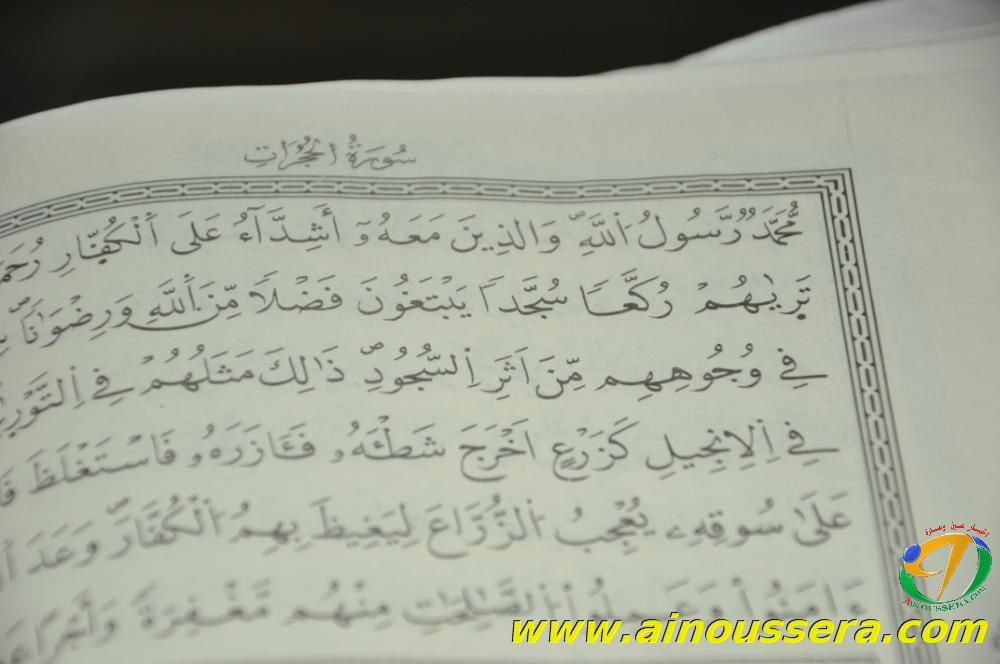 سُورَةُ الْحُجُرَاتِ
مُّحَمَّدٌ رَّسُولُ اُللَّهِۖ وَالذِينَ مَعَهُۥٓ أَشِدَّآءُ عَلَى اَلْكُفّ۪ارِ
تَر۪يٰهُمْ رُكَّعاٗ سُجَّداٗ يَبْتَغُونَ فَضْلاٗ مِّنَ اَللَّهِ وَرِضْوَٰناٗۖ
فِي وُجُوهِهِم مِّنَ اَثَرِ اِلسُّجُودِۖ ذَٰلِكَ مَثَلُهُمْ فِي اِلتَّوْر۪يٰةِ
فِي اِلِانجِيلِ كَزَرْعٍ اَخْرَجَ شَطْـَٔهُۥ فَـَٔازَرَهُۥ فَاسْتَغْلَظَ
عَلَىٰ سُوقِهِۦ يُعْجِبُ اُلزُّرَّاعَ لِيَغِيظَ بِهِمُ اُلْكُفَّارَۖ وَعَدَ
ءَامَنُواْ وَعَمِلُواْ اُلصَّٰلِحَٰتِ مِنْهُم مَّغْفِرَةٗ وَأَجْراً
اخبار عين وسارة
AINOUSSERA.COM
www.ainoussera.com